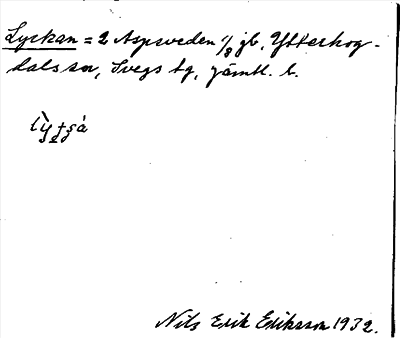 Lyckan = 2 Aspsveden 1/8 gb, Ytterhog-
dals sn, Svegs tg, Jämtl. l.
Nils Erik Eriksson 1932.